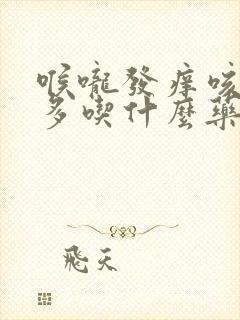 喉嚨發痒咳
多喫什麼藥
飛天